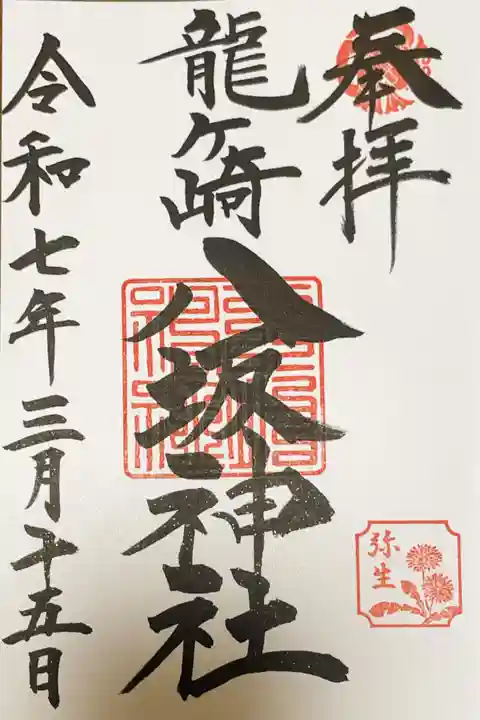 奉拝
龍ヶ崎
八坂神社
弥生
令和七年三月十五日